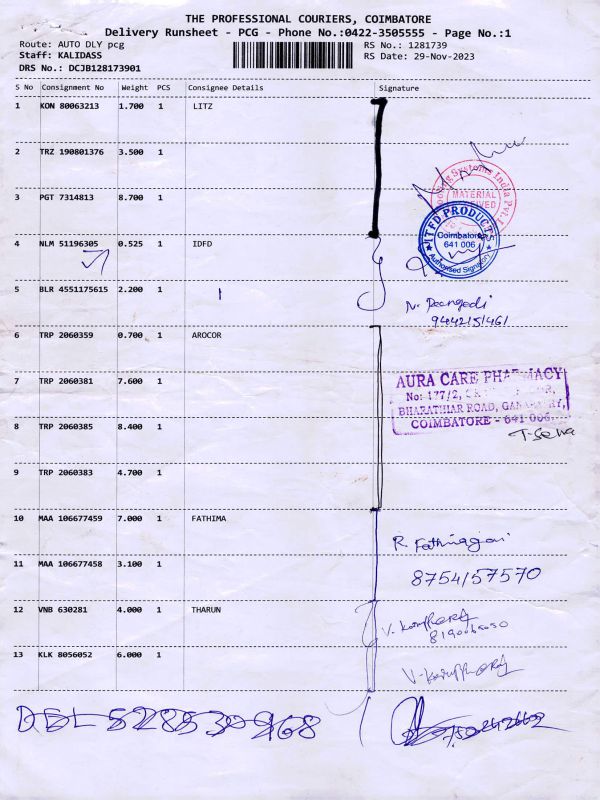 THE PROFESSIONAL COURIERS, COIMBATORE
Delivery Runsheet - PCG - Phone No.:0422-3505555 - Page No.:1
Route: AUTO DLY pcg
RS No.: 1281739
Staff: KALIDASS
RS Date: 29-Nov-2023
DRS No.: DCJB128173901
S No Consignment No Weight PCS Consignee Details Signature
1 KON 80063213 1.700 1 LITZ
2 TRZ 190801376 3.500 1
3 PGT 7314813 8.700 1
Systems India Pvt.
MATERIAL
4 NLM 51196305 0.525 1 IDFD
PRODUCTS
Coimbatore
641 006
Authorised Signatory
5 BLR 4551175615 2.200 1
9442151461
6 TRP 2060359 0.700 1 AROCOR
7 TRP 2060381 7.600 1
AURA CARE PHARMACY
No: 177/2,
BHARATHIAR ROAD,
COIMBATORE - 641 006
8 TRP 2060385 8.400 1
9 TRP 2060383 4.700 1
10 MAA 106677459 7.000 1 FATHIMA
R.
11 MAA 106677458 3.100 1
8754157570
12 VNB 630281 4.000 1 THARUN
13 KLK 8056052 6.000 1